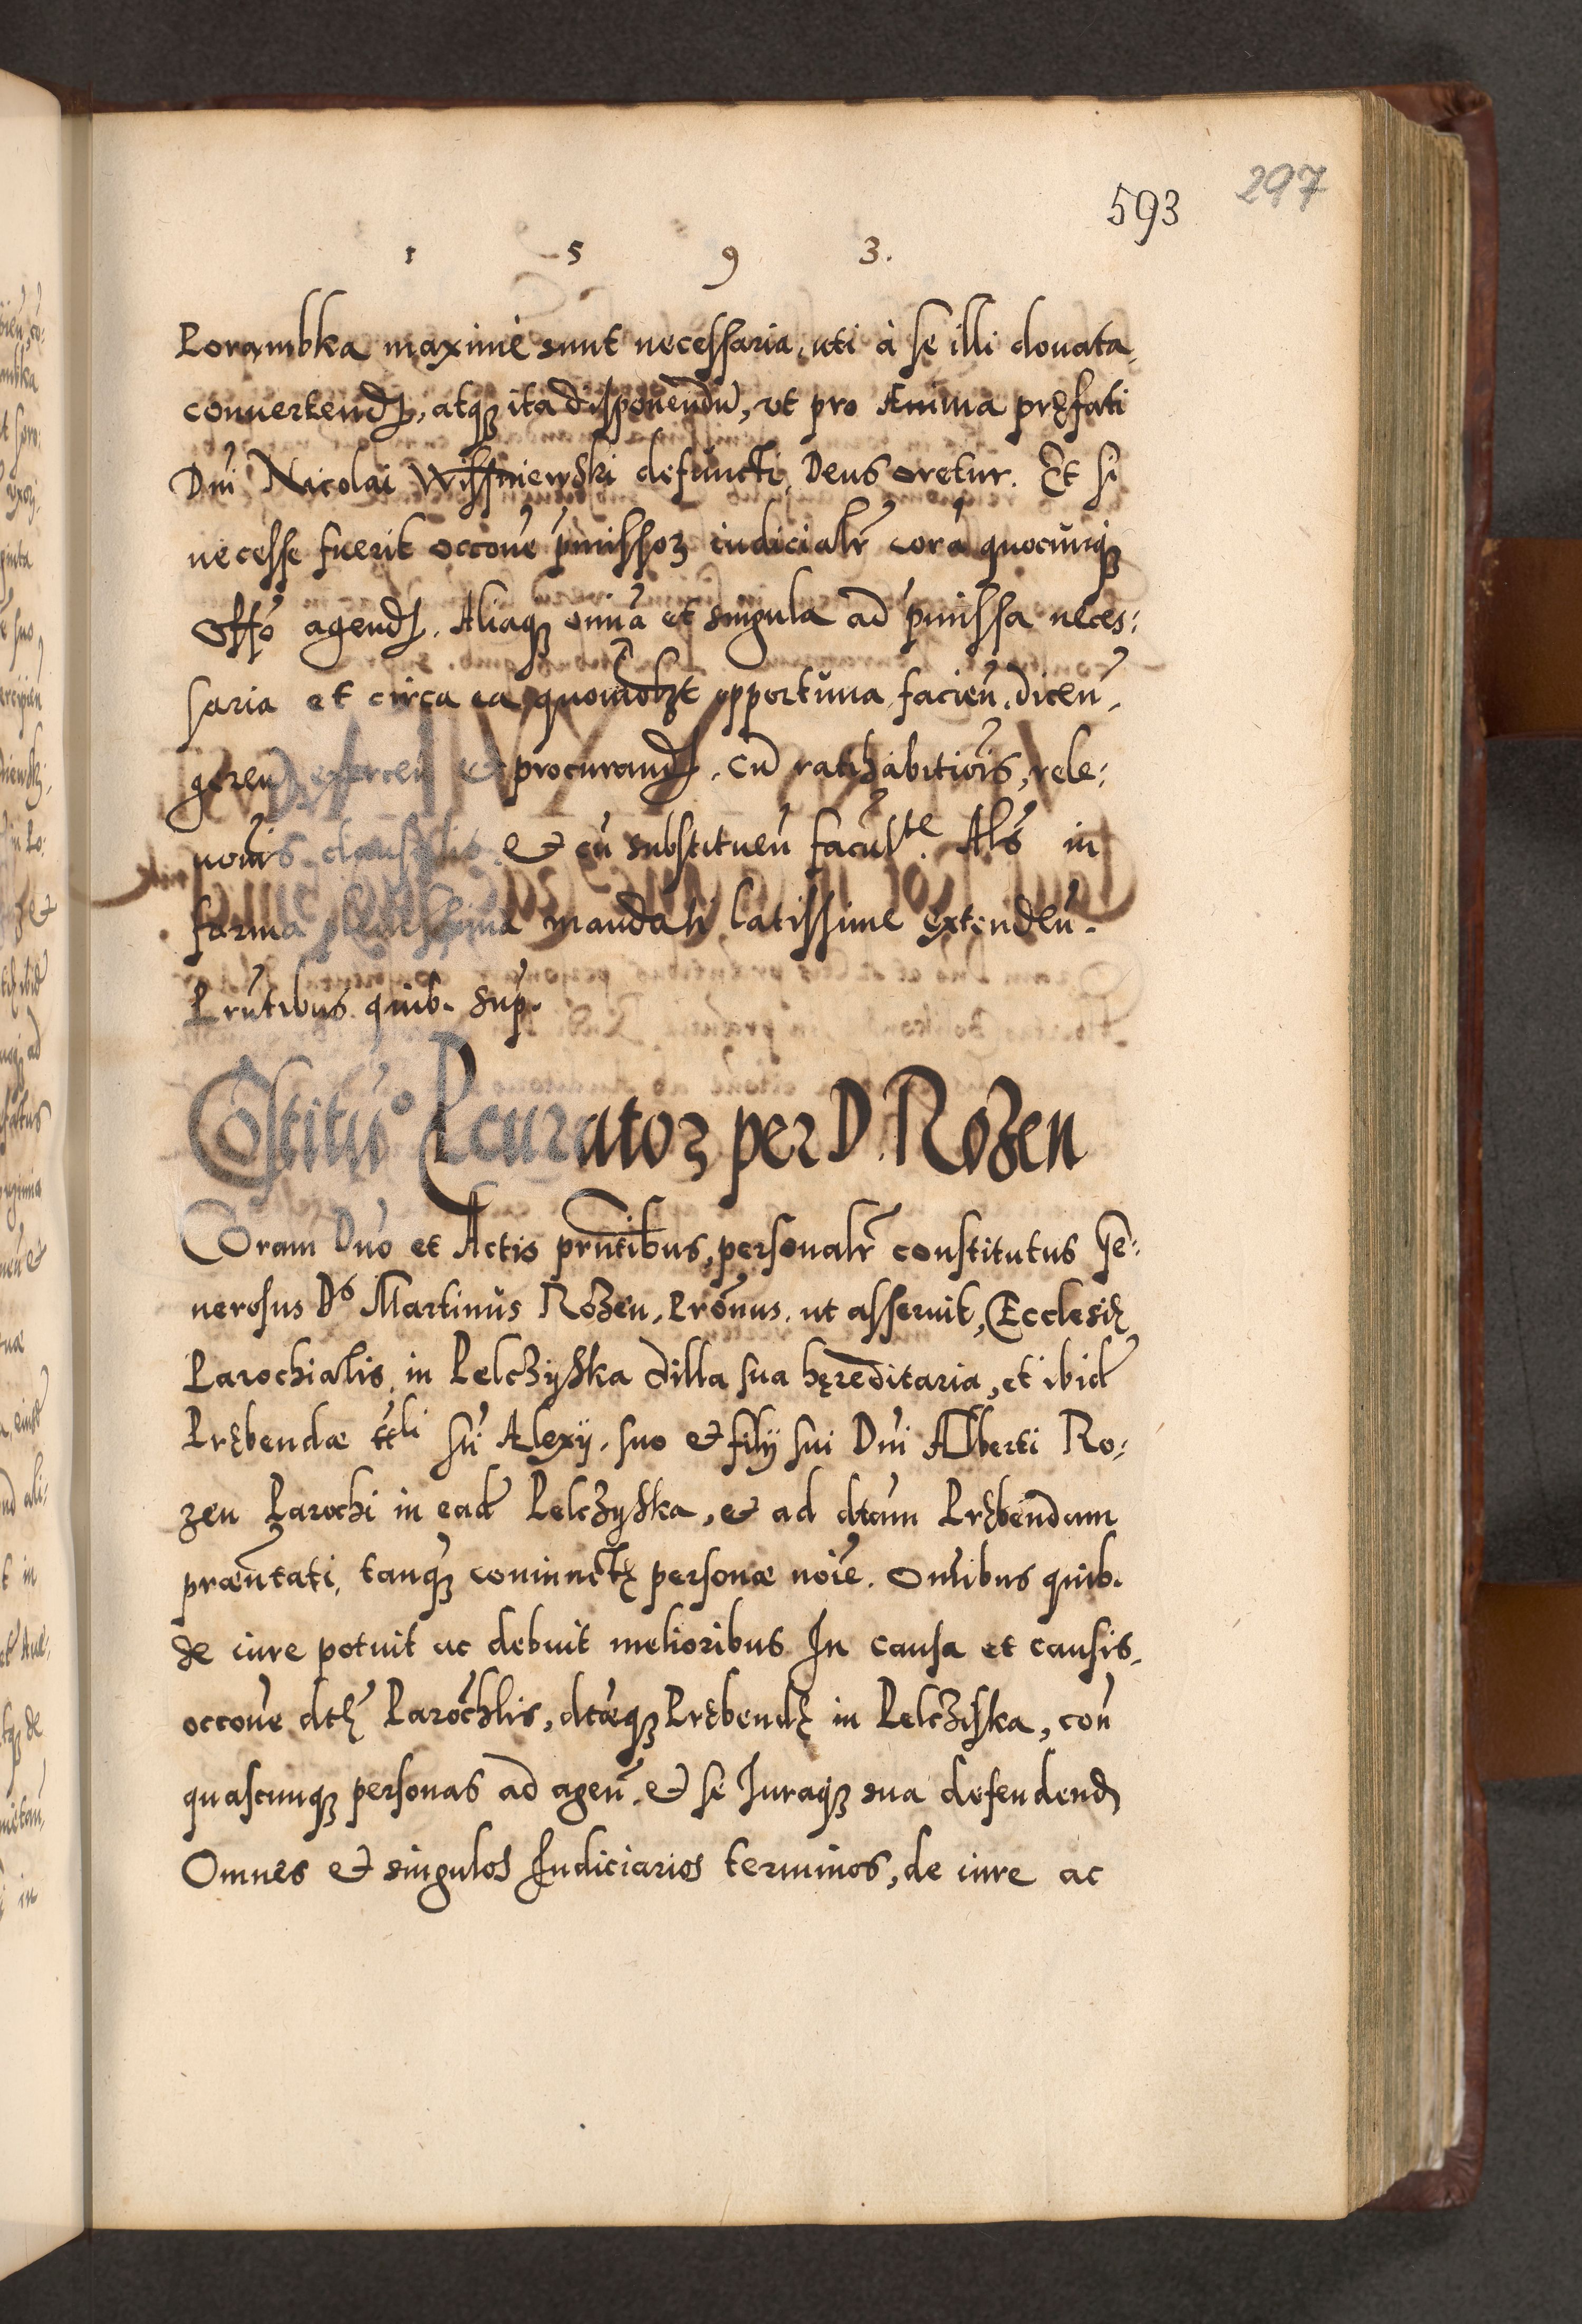 297
593
1 5 9 3.
Porambka maximè sunt necessaria, uti à se illi donata,
conuertend, atq₃ ita disponendũ, vt pro Anima pręfati
Dni Nicolai Wissniewski defuncti, Deus oretur. Et si
necesse fuerit occone p̃missoꝝ iudicialr corã quocunq₃
Offo agend, Aliaq₃ omnia et singula ad p̃missa neces:
saria et circa ea quomõlzt opportuna, facien, dicen,
geren exercen et procurand, Cũ ratihabitiõis, rele:
uonis clausulis. & cũ substituen facul^te. Als in
forma plenissima mandati latissime extenden.
Prñtibus quib. sup.
Cõstitũo Pcuratoꝝ per D. Rozen
Coram Dno et Actis prñtibus, personalr constitutus Ge:
nerosus D^s Martinus Rozen, Pronus, ut asseruit, Ecclesię
Parochialis, in Pelczyska villa sua hęreditaria, et ibid
Prębendæ tt^li Sti Alexÿ. suo & filÿ sui Dni Alberti Ro:
zen Parochi in ead Pelczyska, & ad dtam Prębendam
præntati, tanq₃ coniunctę personæ noie. Omibus quib.
de iure potuit ac debuit melioribus In causa et causis,
occone dtę Parochlis, dtæq₃ Prębendę in Pelcziska, con
quascunq₃ personas ad agen. & se Iuraq₃ sua defendend
Omnes & singulos Iudiciarios terminos, de iure ac